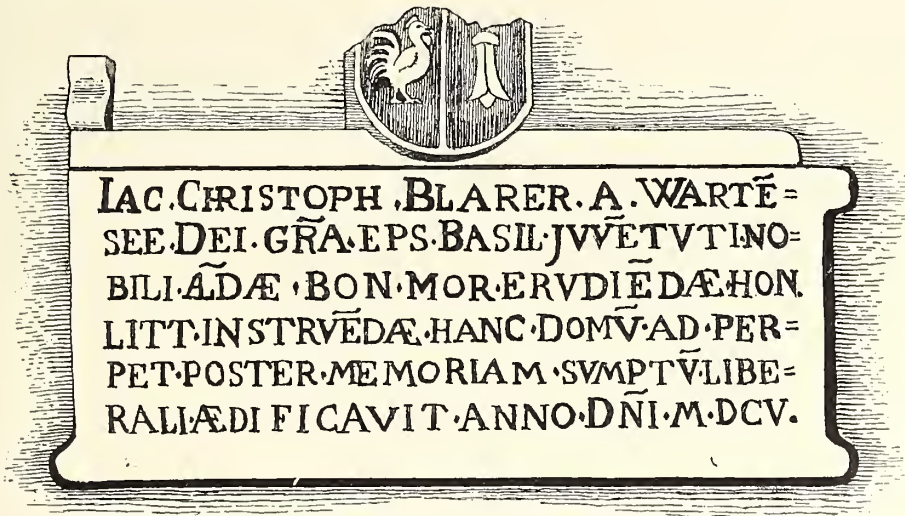 IAC·CHRISTOPH·BLARER·A·WARTĒ=
SEE·DEI·GR̄A·EPS·BASIL·JVVĒTVTI·NO=
BILI·AL̃DÆ·BON·MOR·ERVDIĒDÆ·HON.
LITT·INSTRVĒDÆ·HANC·DOMV̄·AD·PER=
PET·POSTER·MEMORIAM·SVMPTV̄·LIBE=
RALI·ÆDIFICAVIT·ANNO·DÑI·M·DCV.